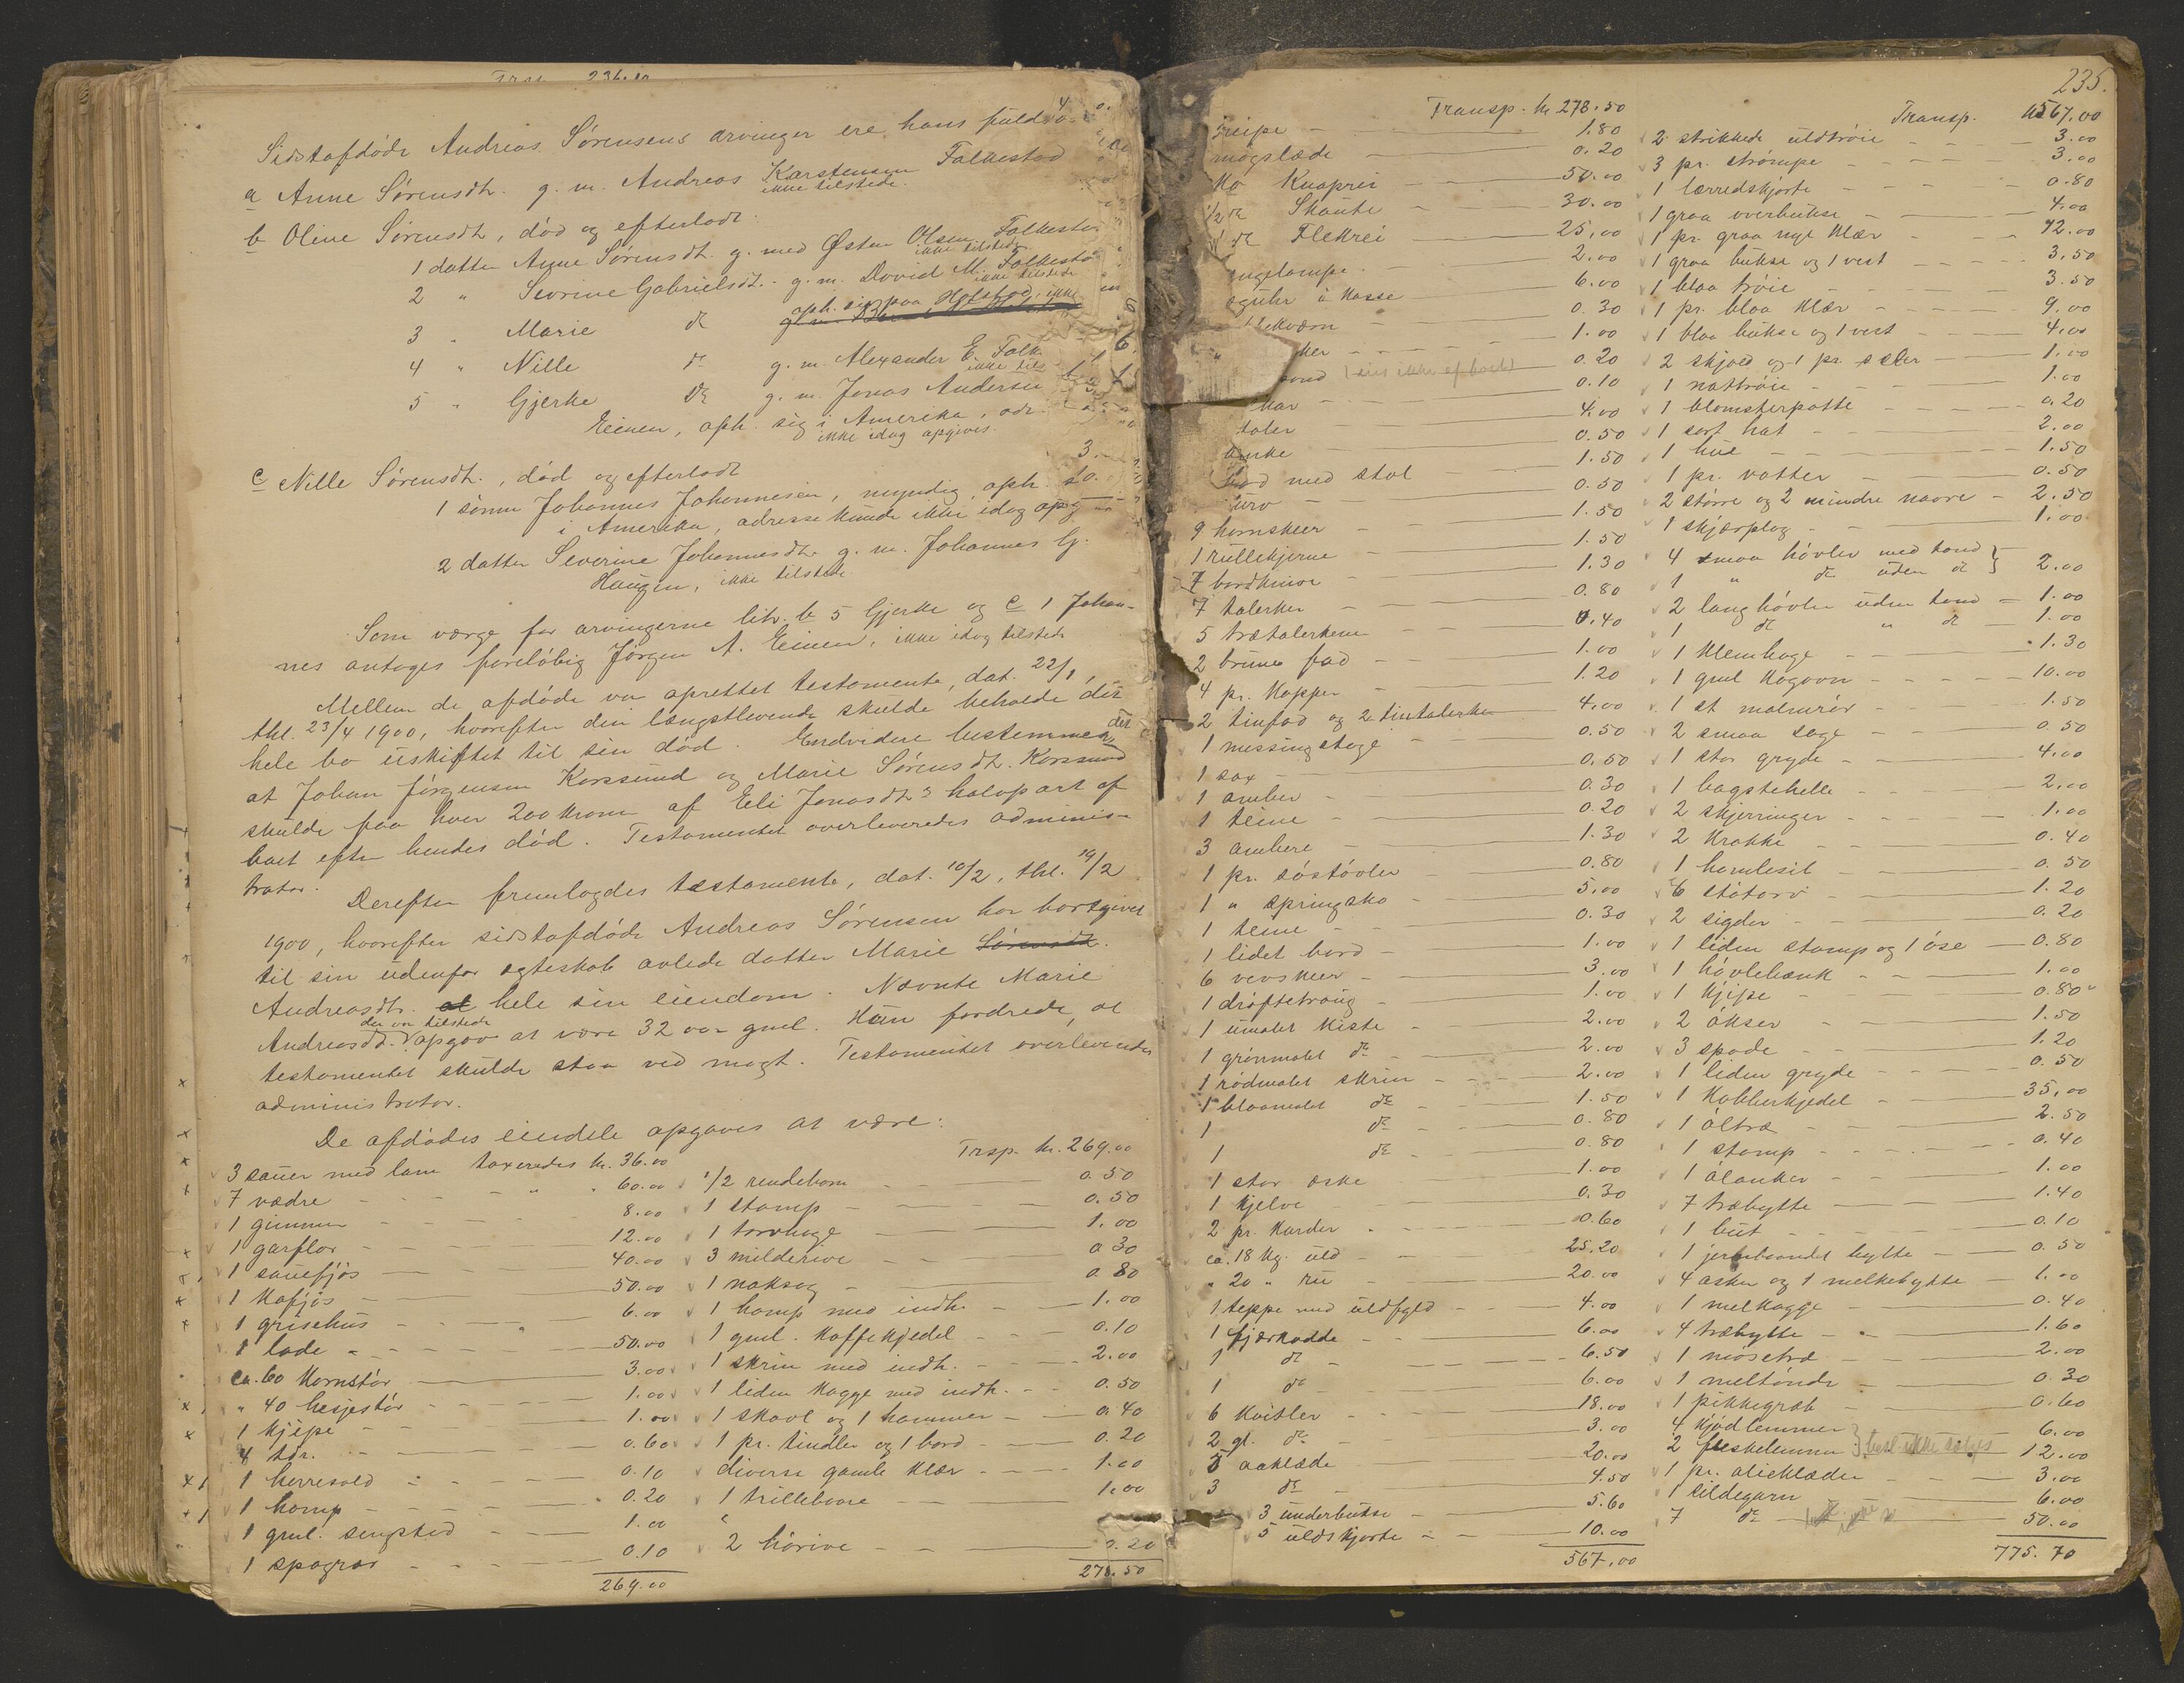 Sidstafdøde Andreas Sørensens arvinger ere hans
a Anne Sørensdtr. g. m. Andreas Karstensen Falkestad
ikke tilstede.
b Oline Sørensdtr, død og efterladt:
1 datter Anne Sørensdtr. g. med Østen Olsen Falkestad
ikke tilstede
2 " Severine Gabrielsdtr. g. m. David M. Falkestad
ikke tilstede
3 " Marie do oph. sig paa Hofstad, ikke
4 " Nille do g. m. Alexander E. Falk
ikke tils
5 " Gjerke do g. m. Jonas Andersen
Eienen, oph. sig i Amerika, adr.
ikke idag opgives.
c Nille Sørensdtr., død og efterladt
1 sønn Johannes Johannesen, myndig, oph.
i Amerika, adresse kunde ikke idag opg
2 datter Severine Johannesdtr g. m. Johannes G.
Haugen, ikke tilstede
Som værge for arvingerne litr. b 5 Gjerke og c 1 Johan-
nes antages foreløbig Jørgen A. Eienen, ikke idag tilstede
Mellem de afdøde var oprettet testamente, dat. 22/1,
thl. 23/4 1900, hvorefter den længstlevende skulde beholde det
hele bo uskiftet til sin død. Endvidere bestemmes det
at Johan Jørgensen Korssund og Marie Sørensdtr. Korssund
skulde faa hver 200 kroner af Eli Jonasdtrs halvpart af
boet efter hendes død. Testamentet overleveredes adminis-
trator.
Derefter fremlagdes testamente, dat. 10/2, thl. 19/2
1900, hvorefter sidstafdøde Andreas Sørensen har bortgivet
til sin udenfor egteskab avlede datter Marie Sørensdtr.
Andreasdtr. al hele sin eiendom. Nævnte Marie
der var tilstede
Andreasdtr. opgav at være 32 aar gml. Hun fordrede, at
testamentet skulde staa ved magt. Testamentet overleveredes
administrator.
De afdødes eiendele opgaves at være:
3 sauer med lam taxeredes kr. 36.00
7 vædre " " 60.00
1 gimmer 8.00
1 garflor 12.00
1 sauefjøs 40.00
1 kofjøs 50.00
1 grisehus 6.00
1 lade 50.00
ca. 60 kornstør 3.00
" 40 hesjestør 1.00
1 kjipe 1.00
8 tdr. 0.60
1 herresold 0.10
1 hamp 0.20
1 gml. sengsted 1.00
1 spagrav 0.10
269.00
Trsp. kr. 269.00
1/2 rendebom 0.50
1 stamp 0.50
1 torvhage 1.00
3 milderive 0.30
1 naksag 0.80
1 hamp med indh. 1.00
1 gml. kaffekjedel 0.10
1 skrin med indh. 2.00
1 liden kagge med indh. 0.50
1 skavl og 1 hammer 0.40
1 pr. tindler og 1 bord 0.20
diverse gamle klær 1.00
1 trillebaare 1.00
2 hørive 0.20
278.50
235.
Transp. kr 278.50
greipe 1.80
møgslæde 0.20
ko Knaprei 50.00
1/2 do Skaute 30.00
do Flekrei 25.00
engelampe 2.00
aguhr i kasse 6.00
kværn 0.30
ker 1.00
0.20
kar 0.10
taler 4.00
anke 0.50
bord med stol 1.50
urv 0.50
9 hornskeer 1.50
1 rullekjerne 1.50
7 bordknive 1.30
7 talerker 0.80
5 trætalerkene 0.40
2 brune fad 1.00
4 pr. kopper 1.20
2 tinfad og 2 tintalerker 4.00
1 messingstage 0.50
1 sax 0.50
1 amber 0.30
1 teine 0.20
3 ambere 1.30
1 pr. søstøvler 0.80
1 " springsko 5.00
1 teine 0.30
1 lidet bord 1.00
6 vevskeer 3.00
1 drøftetraug 1.00
1 umalet kiste 2.00
1 grønmalet do 2.00
1 rødmalet skrin 2.00
1 blaamalet do 1.50
1 do 0.80
1 do 0.80
1 stor æske 1.00
1 kjelve 0.30
2 pr. karder 0.60
ca. 18 kg. uld 25.20
" 20 " ru 20.00
1 teppe med uldfyld 4.00
1 fjærkodde 6.00
1 do 6.50
1 do 6.00
6 kvitler 18.00
2 gl. do 3.00
5 aaklæde 20.00
3 do 4.50
3 underbukse 5.60
5 uldskjorte 10.00
567.00
Transp. kr 567.00
2 strikkede uldtrøie 3.00
3 pr. strømpe 3.00
1 lærredskjorte 0.80
1 graa overbukse 4.00
1 pr. graa nye klær 12.00
1 graa bukse og 1 vest 3.50
1 blaa trøie 3.50
1 pr. blaa klær 9.00
1 blaa bukse og 1 vest 4.00
2 skjæd og 1 pr. seler 1.00
1 nattrøie 1.00
1 blomsterpotte 0.20
1 sort hat 2.00
1 hue 1.50
1 pr. votter 0.50
2 større og 2 mindre navre 2.50
1 skjærplog 1.00
4 smaa høvler med tand
1 " do uden do } 2.00
2 langhøvler uden tand 1.00
1 do " do 1.00
1 klemhage 1.30
1 gml kogovn 10.00
1 st malmrør 1.50
2 smaa sage 0.50
1 stor gryde 4.00
1 bagstehelle 2.00
2 skjerringer 1.00
2 krakke 0.40
1 hornlesil 0.50
6 støtarv 1.20
2 sigder 0.20
1 liden stamp og 1 øse 0.80
1 høvlebænk 1.00
1 kjipe 0.80
2 økser 1.50
3 spade 1.20
1 liden gryde 0.50
1 kobberkjedel 35.00
1 øltræ 2.50
1 stamp 0.40
1 ølanker 1.00
7 træbytte 1.40
1 but 0.10
1 jernbaandet bytte 0.50
4 asker og 1 melkebytte 1.00
1 melkagge 0.40
4 træbytte 1.60
1 mosetræ 2.00
1 meltønde 0.30
1 pikkegrab 0.60
4 kjødlemmer 6.00
2 fleskelemmer } skal ikke sælges 12.00
1 pr. olieklæder 3.00
1 sildegarn 6.00
7 do 50.00
775.70